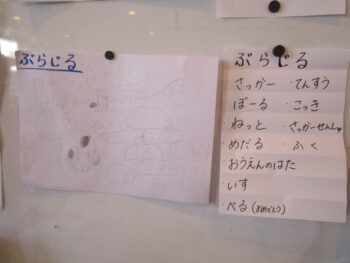 ぶらじる
ぶらじる
さっかー ・てんすう
・ぼーる ・こっき
ねっと ・さっかーせんしゅ
めだる ・ふく
・おうえんのはた
・いす
・べる(おめでとう)